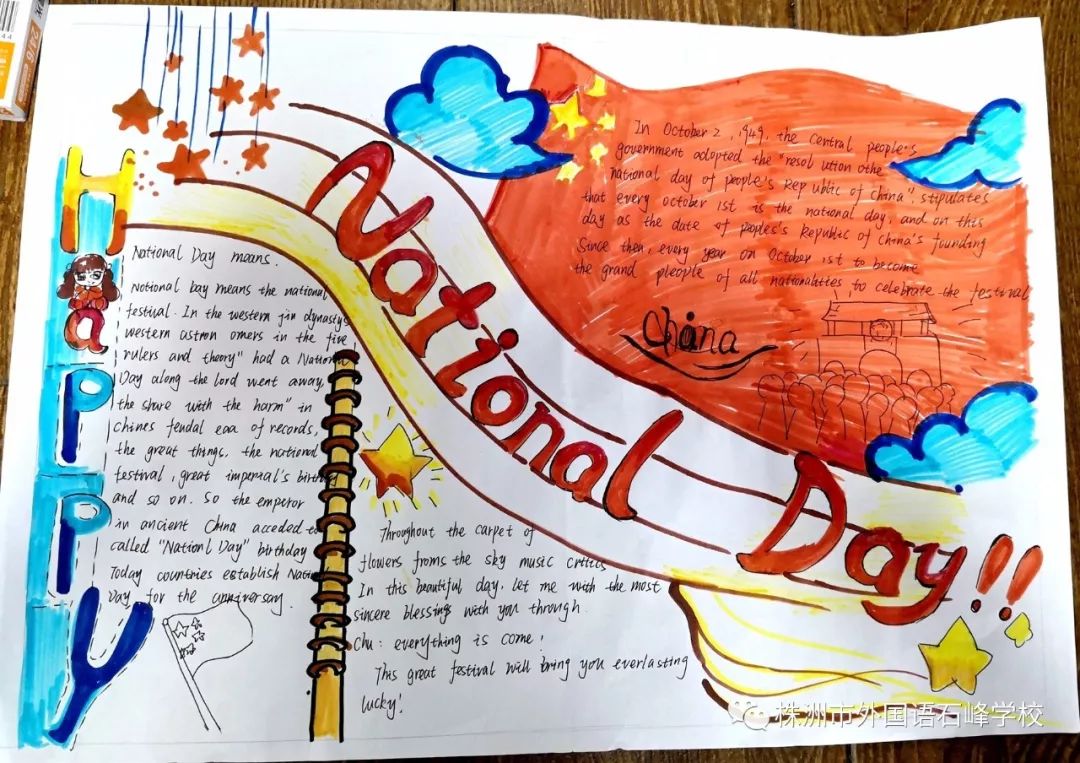 Happy
National Day!!
In October 2, 1949, the central people's
government adopted the "resol ution othe
national day of people's Rep ublic of china", stipulates
that every october 1st is the national day, and on this
day as the date of poples's Republic of china's funding
Since then, every year on October 1st to become
the grand pleople of all nationalities to celebrate the festival
china
National Day means.
National bay means the national
festival. In the western jin dynasty,
western astron omers in the five
rulers and theory" had a National
Day along the lord went away,
the share with the harm" in
chines feudal eaa of records,
the great things, the national
festival, great imperial's birthday
and so on. So the emperor
in ancient China acceded to
called "Nationl Day" birthday
Today countries establish Natio
Day for the anniversay.
Throughout the carpet of
flowers froms the sky music critics
In this beautiful day, let me with the most
sincere blessings with you through.
Chu: everything is come!
This great festival will bring you everlasting
lucky!
株洲市外国语石峰学校